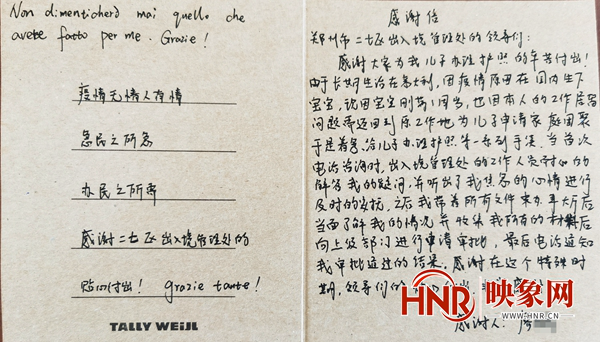 Non dimenticherò mai quello che
avete fatto per me. Grazie!
疫情无情人有情
急民之所急
办民之所需
感谢二七区出入境管理处的
贴心付出! Grazie tante!
TALLY WEiJL
感谢信
郑州市二七区出入境管理处的领导们:
感谢大家为我儿子办理护照的辛苦付出!
由于长期生活在意大利,因疫情原因在国内生下
宝宝,说因宝宝刚满1周岁,也因本人的工作居留
问题需返回到原工作地为儿子申请家庭团聚
于是着急给儿子办理护照等一系列手续。当首次
电话咨询时,出入境管理处的工作人员耐心的为
解答我的疑问,并听出了我焦急的心情进行
及时的安抚,之后我带着所有文件来办事大厅后
当面了解我的情况并收集我所有的材料后
向上级部门进行申请审批,最后电话通知
我审批通过的结果。感谢在这个特殊时
期,领导们的
感谢人:
HNR 映象网
WWW.HNR.CN